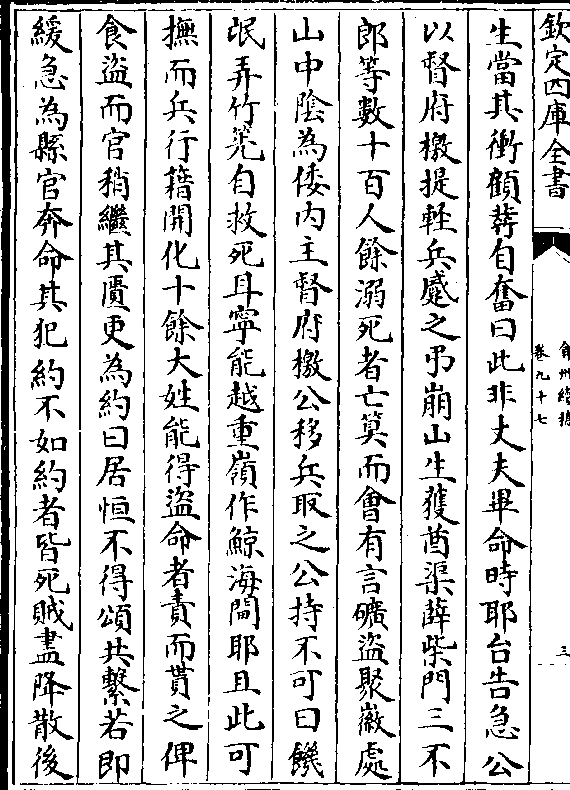 欽定四庫全書
弇州續稿
卷九十七
三
生當其衝顧蔣自奮曰此非丈夫畢命時耶台告急公
以督府檄提輕兵蹙之弔崩山生獲酋渠薛柴門三不
郎等數十百人餘溺死者亡算而會有言礦盜聚嶶處
山中陰為倭内主督府檄公移兵取之公持不可曰饑
氓弄竹筅自救死耳寧能越重嶺作鯨海閫耶且此可
撫而兵行籍開化十餘大姓能得盜命者責而貰之俾
食盜而官稍繼其匱更為約曰居恒不得頌共繫若即
緩急為縣官奔命其犯約不如約者皆死賊盡降散後